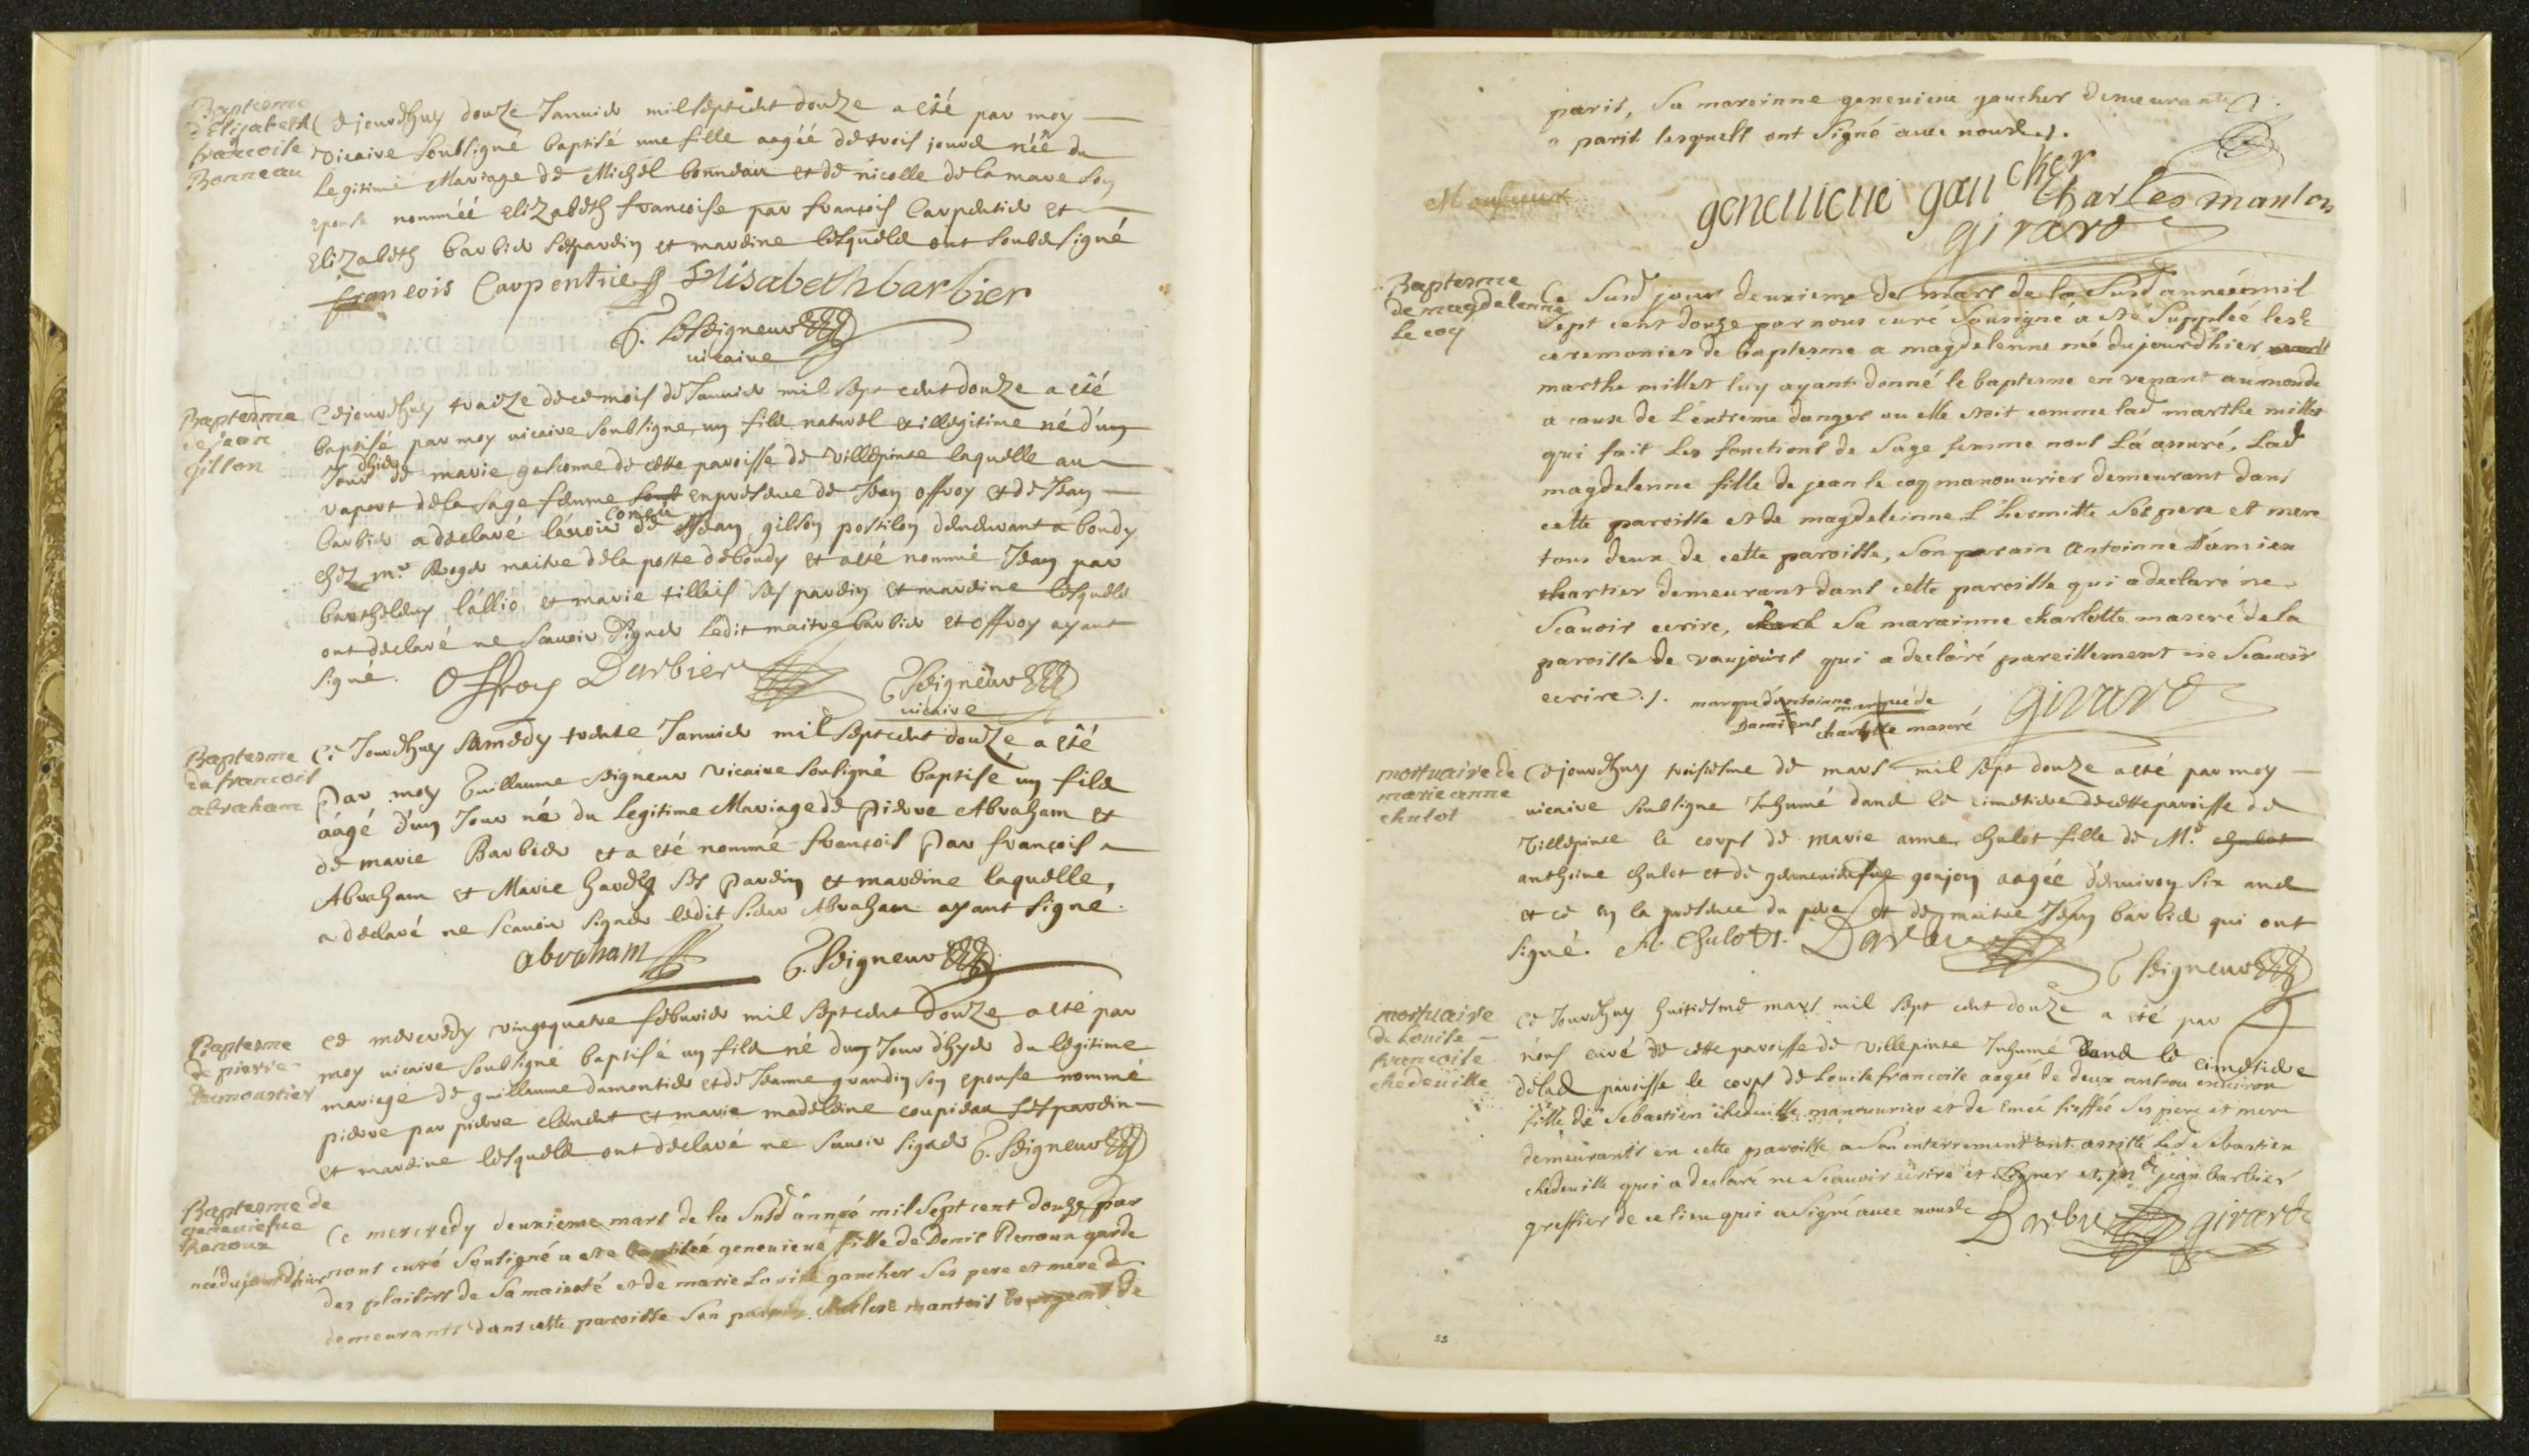 Baptesme
d'Elizabeth
francoise
Bonneau
Cejourdhuy douze Januier mil septcent douze a été par moy
vicaire soubsigné baptisé une fille aagéé de trois jours néé du
legitime Mariage de Michel bonneau et de nicolle delamare son
epouse nomméé Elizabeth francoise par francois Carpentier et
Elizabeth barbier ses parein et mareine lesquels ont soubsigné
francois Carpentier Elisabeth barbier
G. Le Seigneur
vicaire
Baptesme
de jean
gilson
Cejourdhuy traize de ce mois de Januier mil sept cent douze a été
baptisé par moy vicaire soubsigné un fils naturel et illegitime né d'un
Jour dhier de marie gasconne de cette paroisse de Villepinte laquelle au
raport de la sage femme en presence de Jean offroy et de Jean
barbier a declaré l'auoir conceu de Jean gilson postilon demeurant a bondy
chez mr. Roger maitre de la poste de bondy et a été nommé Jean par
barthelemy lallio et marie tillais ses parein et mareine lesquels
ont declaré ne scauoir signer ledit maitre barbier et offroy ayant
signé. Offroy Barbier G. Seigneur
vicaire
Baptesme
de francois
abraham
Ce Jourdhuy samedy trente Januier mil septcent douze a été
Par moy Guillaume Seigneur vicaire soubsigné baptisé un fils
aagé d'un Jour né du legitime Mariage de Pierre Abraham et
de marie Barbier et a été nommé francois Par francois
Abraham et Marie hardy ses Parein et mareine laquelle
a declaré ne scauoir signer ledit sieur Abraham ayant signé.
abraham G. Seigneur
Baptesme
de pierre
Dumoustier
Ce mercredy vingtquatre febvrier mil septcent douze a été par
moy vicaire soubsigné baptisé un fils né d'un Jour d'hyer du legitime
mariage de guillaume dumontier et de Jeanne grandin son epouse nommé
pierre par pierre clement et marie madeleine coupieau ses parein
et mareine lesquels ont declaré ne scauoir signer G. Seigneur
Baptesme de
geneuiefue
Renoux
néé du jourdhier
Ce mercredy deuxieme mars de la susd année mil sept cent douze par
nous curé sousigné a esté baptiséé geneuieue fille de Denis Renoux garde
des plaisirs de sa maiesté et de marie Louise gaucher ses pere et mere
demeurants dans cette paroisse son parain Charles mantois bourgeois de
paris, sa mareinne geneuieue gaucher demeurante
a paris lesquels ont signé auec nous
geneuieue gaucher Charles mantois
girard
Baptesme
de magdelenne
Le coq
Ce susd jour deuxieme de mars de la susd année mil
sept cent douze par nous curé sousigné a esté suppléé les
ceremonies de baptesme a magdelenne néé du jourdhier
marthe millet luy ayant donné le baptesme en venant au monde
a cause de l'extreme danger ou elle etoit comme lad marthe millet
qui fait les fonctions de sage femme nous l'a assuré. Lad
magdelenne fille de jean le coq manouurier demeurant dans
cette paroisse et de magdeleinne L'hermitte ses pere et mere
tous deux de cette paroisse, son parain Antoinne Damien
chartier demeurant dans cette paroisse qui a declaré ne
scauoir ecrire, sa marainne charlotte maseré de la
paroisse de vaujours qui a declaré pareillement ne scauoir
ecrire ./. marque d'antoinne Damiens marque de charlotte maseré girard
mortuaire de
marie anne
chulot
Cejourdhuy troisiesme de mars mil sept douze a été par moy
vicaire soubsigné Inhumé dans le cimetiere de cette paroisse de
Villepinte le corps de marie anne chulot fille de Me. chulot
anthoine chulot et de geneuiefue goujon aagéé d'enuiron six ans
et ce en la presence du pere et de maitre Jean barbier qui ont
signé. A. Chulot. Barbier G. Seigneur
mortuaire
de Louise
francoise
chedeuille
Ce Jourdhuy huitiesme mars mil sept cent douze a été par
nous curé de cette paroisse de villepinte Inhumé dans le cimetiere
de lad paroisse le corps de Louise francoise aagéé de deux ans ou enuiron
fille de Sebastien chedeuille manouurier et de Eméé fieffée ses pere et mere
demeurants en cette paroisse a son enterrement ont assisté led Sebastien
chedeuille qui a declaré ne scauoir ecrire et signer et me jean barbier
greffier de ce lieu qui a signé auec nous Barbier girard